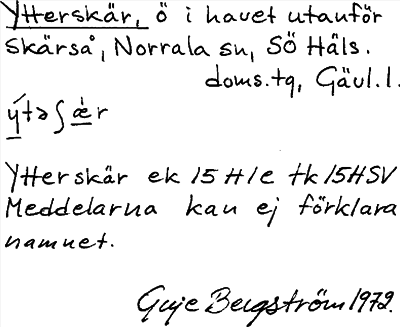 Ytterskär, ö i havet utanför
Skärså, Norrala sn, SÖ Häls.
doms.tg, Gävl.l.
ýtəʃæ̀r
Ytterskär ek 15H1e tk15HSV
Meddelarna kan ej förklara
namnet.
Guje Bergström 1972.